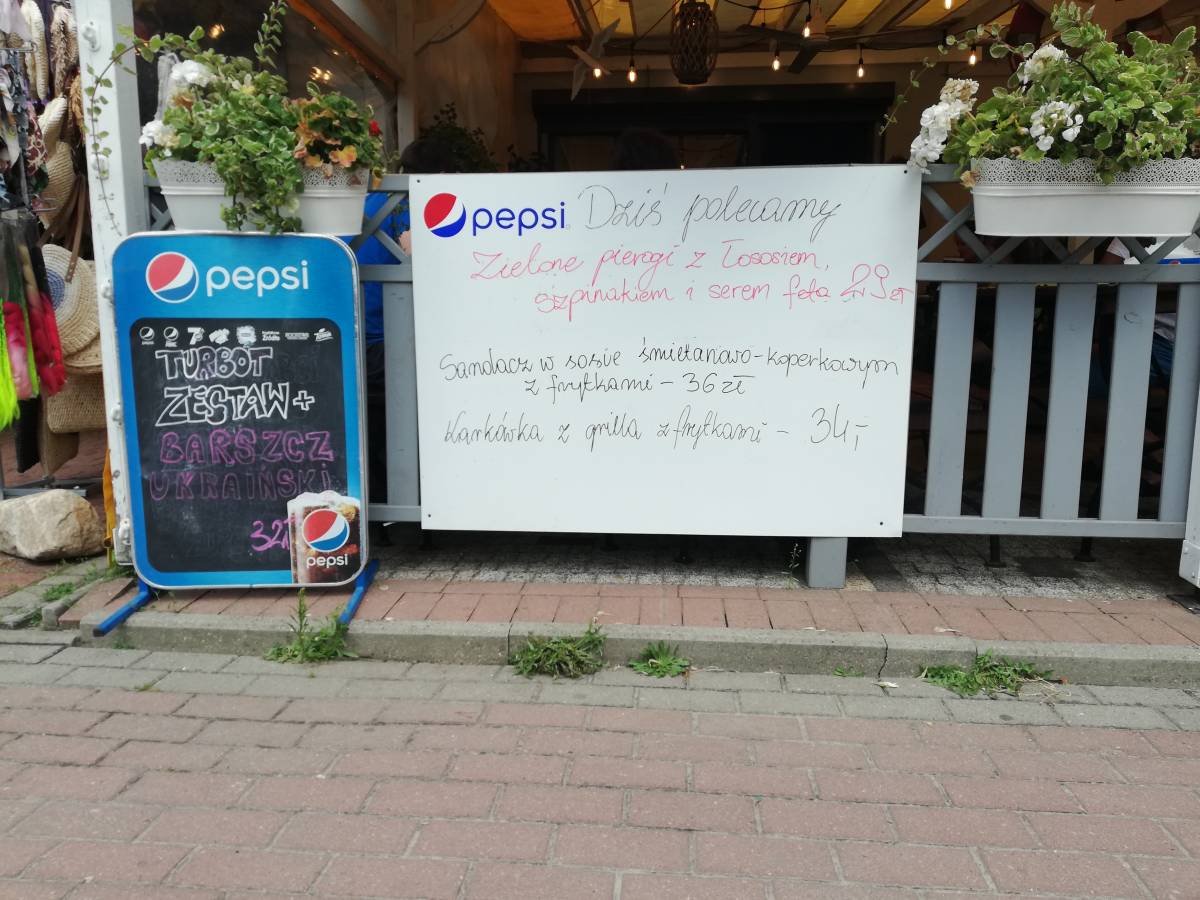 pepsi
TURBOT
ZESTAW+
BARSZCZ
UKRAIŃSKI
32zł
pepsi
pepsi Dziś polecamy
Zielone pierogi z łososiem,
szpinakiem i serem feta 29 zł
Sandacz w sosie śmietanowo-koperkowym
z frytkami - 36 zł
Karkówka z grilla z frytkami - 34,-